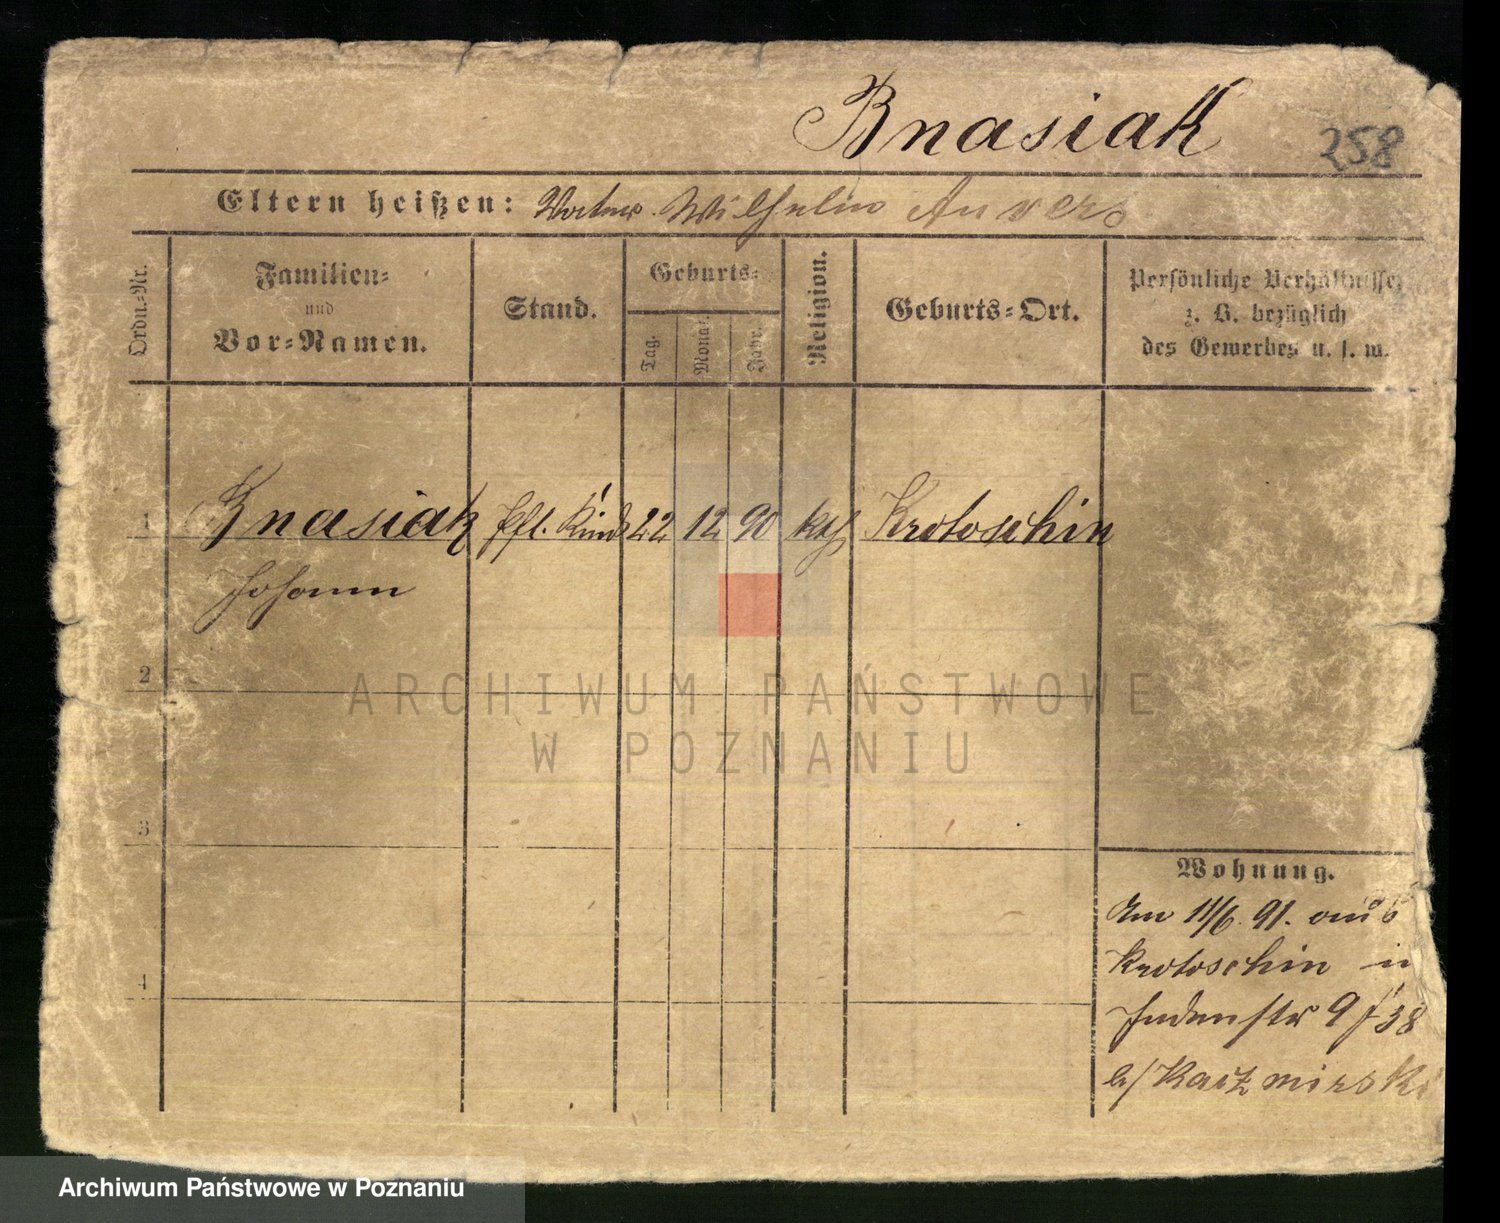 Bnasiak 258
Eltern heißen: Vater Wilhelm
Ordn.=Nr.
Familien=
und
Vor=Namen.
Stand.
Geburts=
Tag.
Monat.
Jahr.
Religion.
Geburts=Ort.
Persönliche Verhältnisse
z. B. bezüglich
des Gewerbes u. s. w.
1 Bnasiak pfl. Kind 22 12 90 kth Krotoschin
Johann
2
3
4
Wohnung.
Am 11/6. 91. aus
Krotoschin
Judenstr 9 / 38
b/ Kaczmirski
ARCHIWUM PAŃSTWOWE
W POZNANIU
Archiwum Państwowe w Poznaniu